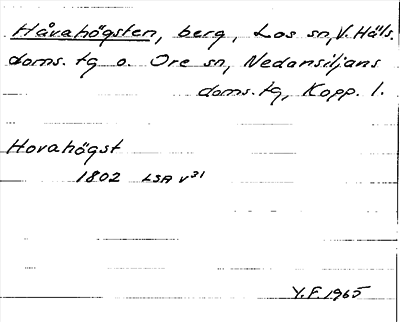 Håvahögsten, berg, Los sn, V. Häls.
doms. tg o. Ore sn, Nedansiljans
doms. tg, Kopp. l.
Hovahögst
1802 LSA V31
Y.F. 1965